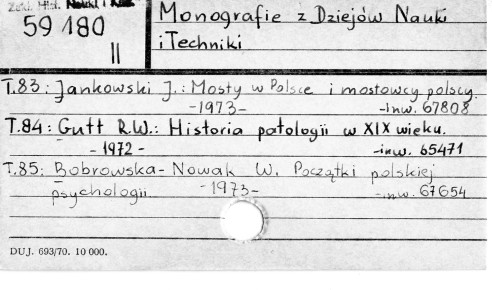 Zakł. Hist. Nauki i Tech.
59 180
II
Monografie z Dziejów Nauki
i Techniki
T.83: Jankowski J.: Mosty w Polsce i mostowcy polscy.
-1973- -inw. 67808
T.84: Gutt R.W.: Historia patologii w XIX wieku.
- 1972 - -inw. 65471
T.85: Bobrowska-Nowak W. Początki polskiej
psychologii. -1973- -inw. 67654
DUJ. 693/70. 10 000.